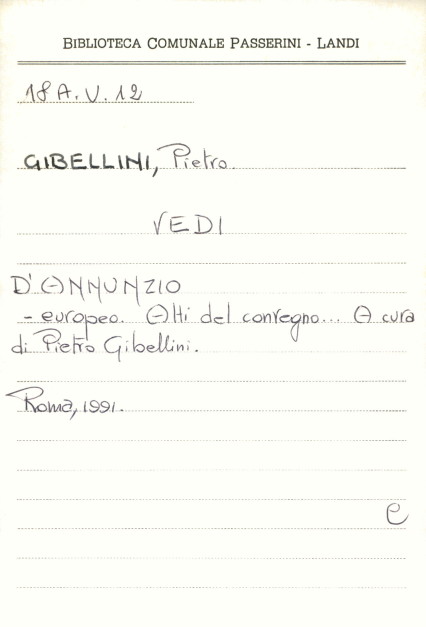 BIBLIOTECA COMUNALE PASSERINI - LANDI
18 A.V.12
GIBELLINI, Pietro.
VEDI
D'ANNUNZIO
- europeo. Atti del convegno... A cura
di Pietro Gibellini.
Roma, 1991.
C